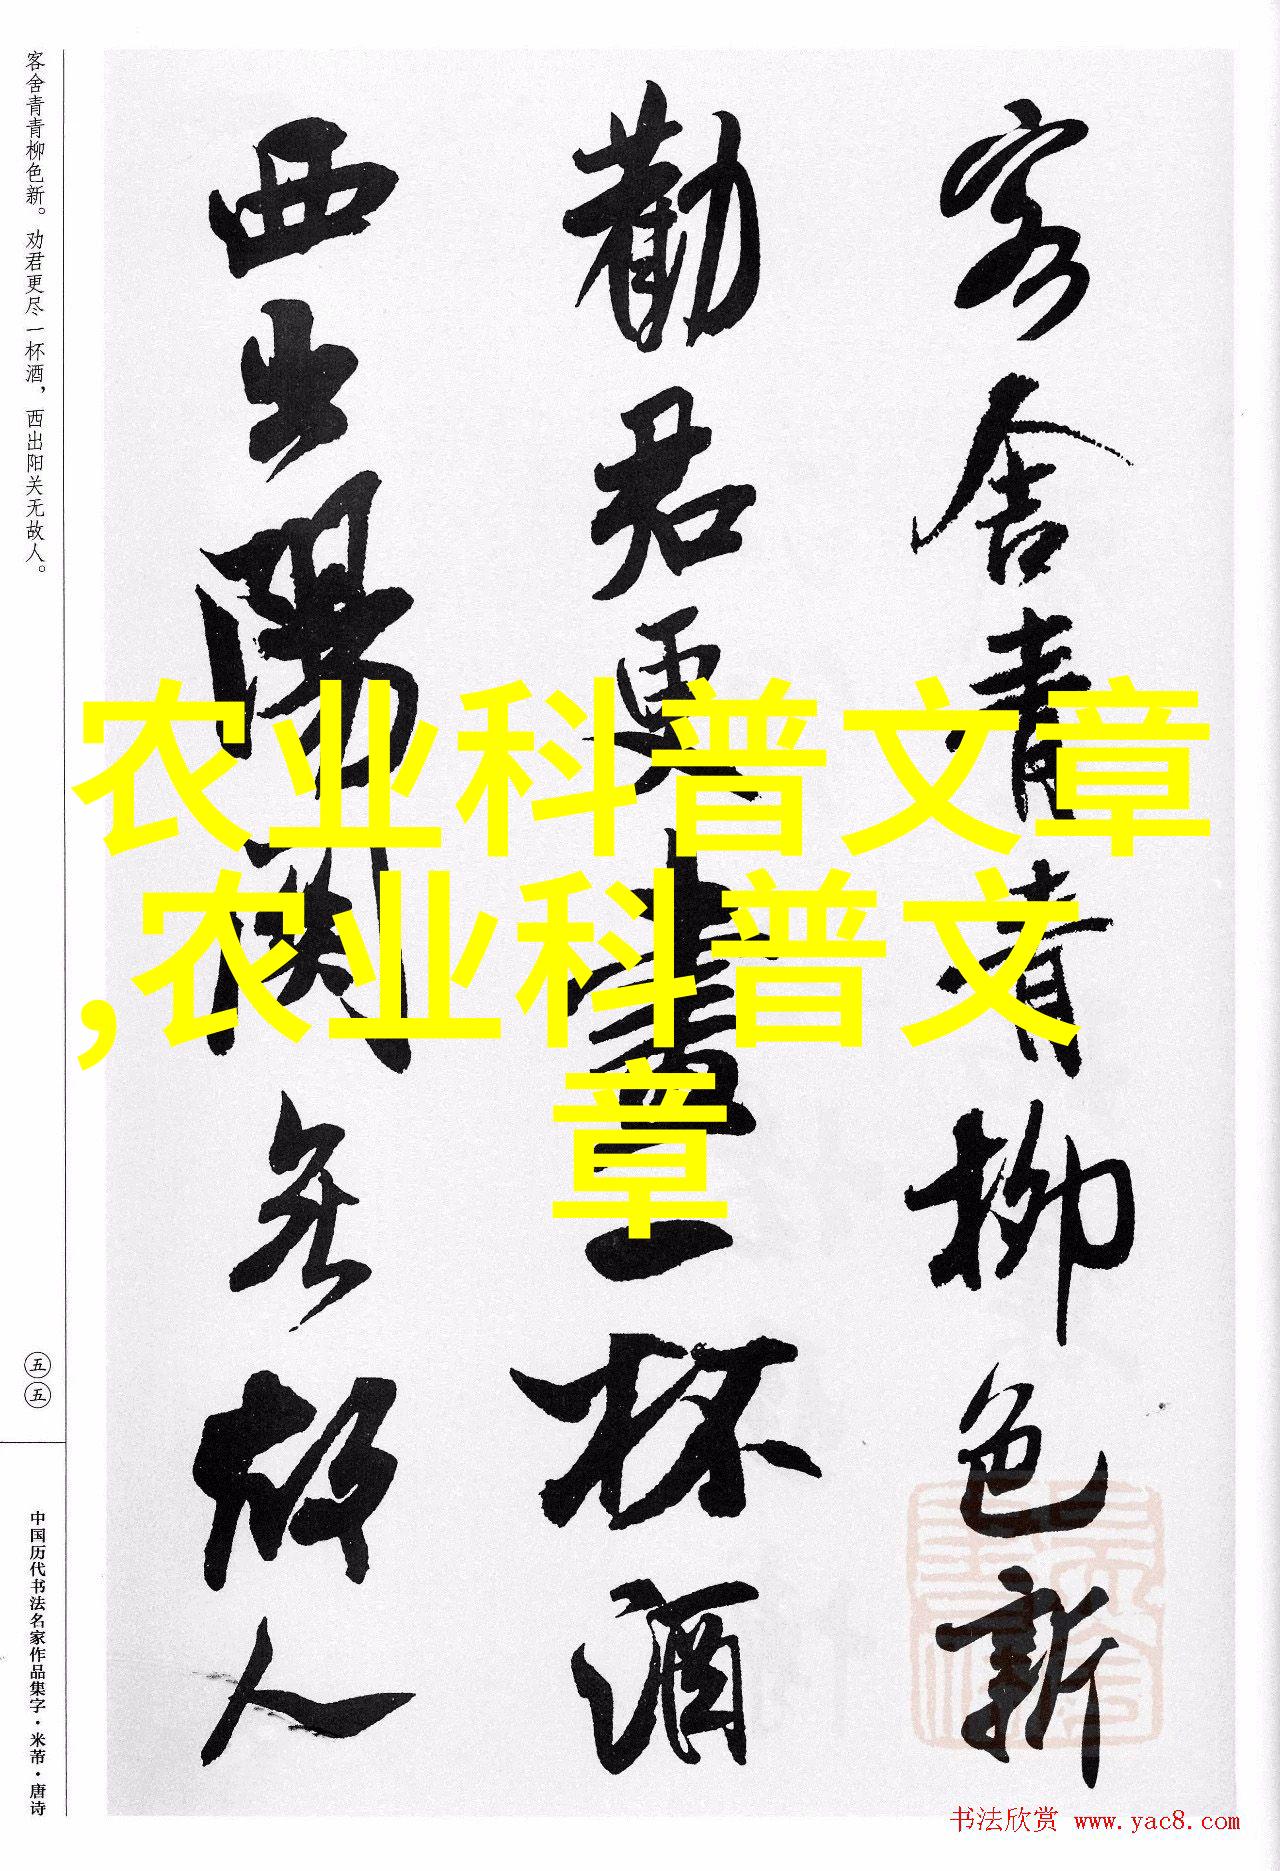 客舍青青柳色新
勸君更盡一杯酒
西出陽關無故人
客舍青青柳色新。劝君更尽一杯酒，西出阳关无故人。
五五
中国历代书法名家作品集字·米芾·唐诗
农业科普文章
,农业科普文
章
书法欣赏 www.yac8.com